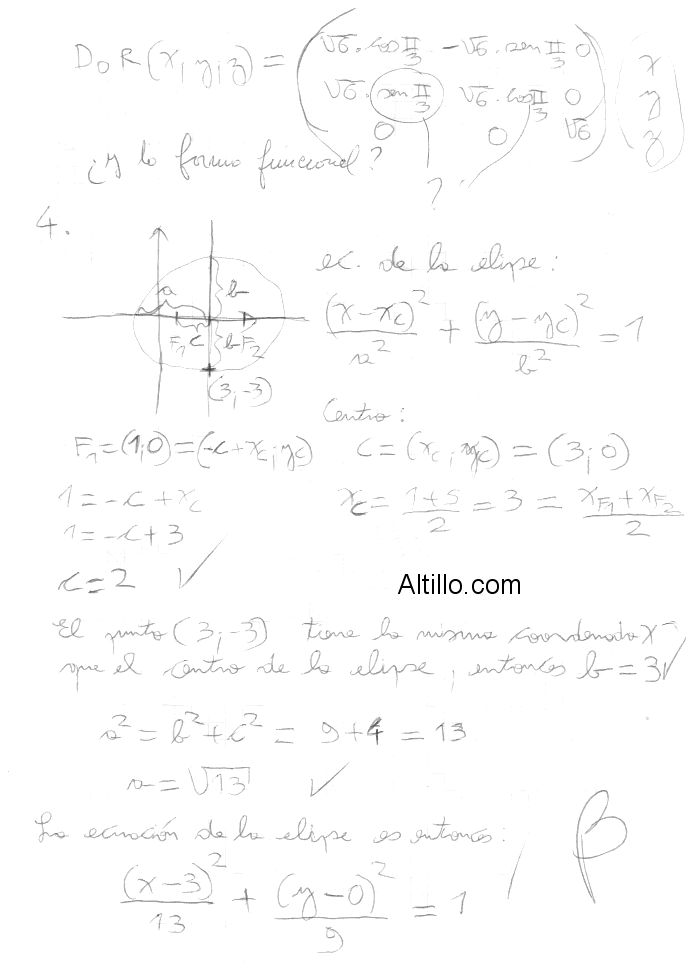 DoR(x,y,z) = (√6·cos π/3 -√6·sen π/3 0) (x)
(√6·sen π/3 √6·cos π/3 0) (y)
(0 0 √6) (z)
¿y la forma funcional?
?
4.
a b
F₁ c b F₂
(3;-3)
ec. de la elipse:
(x-xc)²/a² + (y-yc)²/b² = 1
Centro:
F₁=(1;0)=(-c+xc;yc) C=(xc;yc)=(3;0)
1=-c+xc xc=(1+5)/2=3=(xF₁+xF₂)/2
1=-c+3
c=2 ✓
Altillo.com
El punto (3;-3) tiene la misma coordenada x
que el centro de la elipse, entonces b=3 ✓
a²=b²+c²=9+4=13
a=√13 ✓
La ecuación de la elipse es entonces:
(x-3)²/13 + (y-0)²/9 = 1 / β